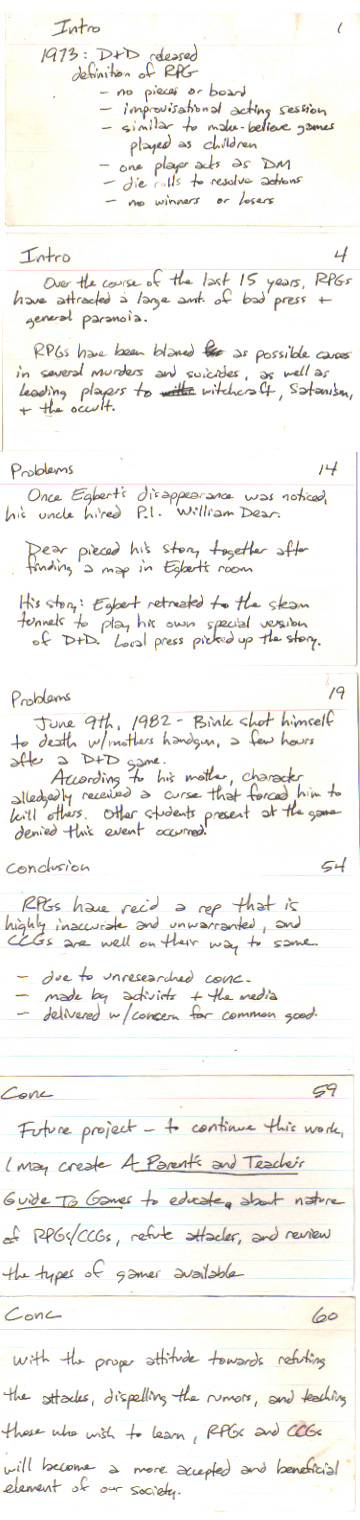 Intro 1
1973: D+D released
definition of RPG
- no pieces or board
- improvisational acting session
- similar to make-believe games
played as children
- one player acts as DM
- die rolls to resolve actions
- no winners or losers
Intro 4
Over the course of the last 15 years, RPGs
have attracted a large amt. of bad press +
general paranoia.
RPGs have been blamed as possible causes
in several murders and suicides, as well as
leading players to witchcraft, Satanism,
+ the occult.
Problems 14
Once Egbert's disappearance was noticed,
his uncle hired P.I. William Dear.
Dear pieced his story together after
finding a map in Egbert's room
His story: Egbert retreated to the steam
tunnels to play his own special version
of D+D. Local press picked up the story.
Problems 19
June 9th, 1982 - Bink shot himself
to death w/mothers handgun, a few hours
after a D+D game.
According to his mother, character
allegedly received a curse that forced him to
kill others. Other students present at the game
denied this event occurred.
Conclusion 54
RPGs have rec'd a rep that is
highly inaccurate and unwarranted, and
CCGs are well on their way to same.
- due to unresearched conc.
- made by activists + the media
- delivered w/concern for common good.
Conc 59
Future project - to continue this work,
I may create A Parent's and Teacher's
Guide To Games to educate about nature
of RPGs/CCGs, refute attacks, and review
the types of games available
Conc 60
With the proper attitude towards refuting
the attacks, dispelling the rumors, and teaching
those who wish to learn, RPGs and CCGs
will become a more accepted and beneficial
element of our society.